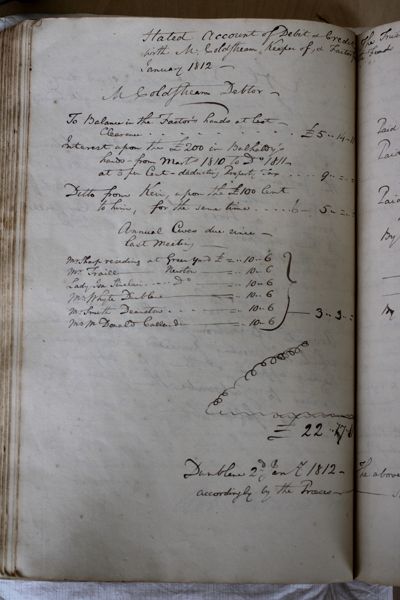 Stated Account of Debit & Credit
with Mr. Coldstream, Keeper of, & Factor
January 1812 —
Mr Coldstream Debtor —
To Balance in the Factor's hands at last
Clearance . . . . . . . £ 5 .. 14 ..
Interest upon the £200 in
hands from Mart. 1810 to Do 1811
at 5 per Cent - deducting Propty Tax . . . 9 .. = ..
Ditto from Keir, upon the £100 lent
to him, for the same time . . . . 5 .. = ..
Annual Cess due since
last Meeting
Mr Sharp residing at Green Yard £ = .. 10 .. 6
Mr Traill Newton = .. 10 .. 6
Lady Sinclair Do = .. 10 .. 6
Mr Whyte Dunblane = .. 10 .. 6
Mr Smith Deanston = .. 10 .. 6
Mr McDonald = .. 10 .. 6
3 .. 3 ..
£ 22 .. 17 ..
Dunblane 2d Jany 1812 —
accordingly by the Preses
The
Paid
Paid
Paid
By
By
The above